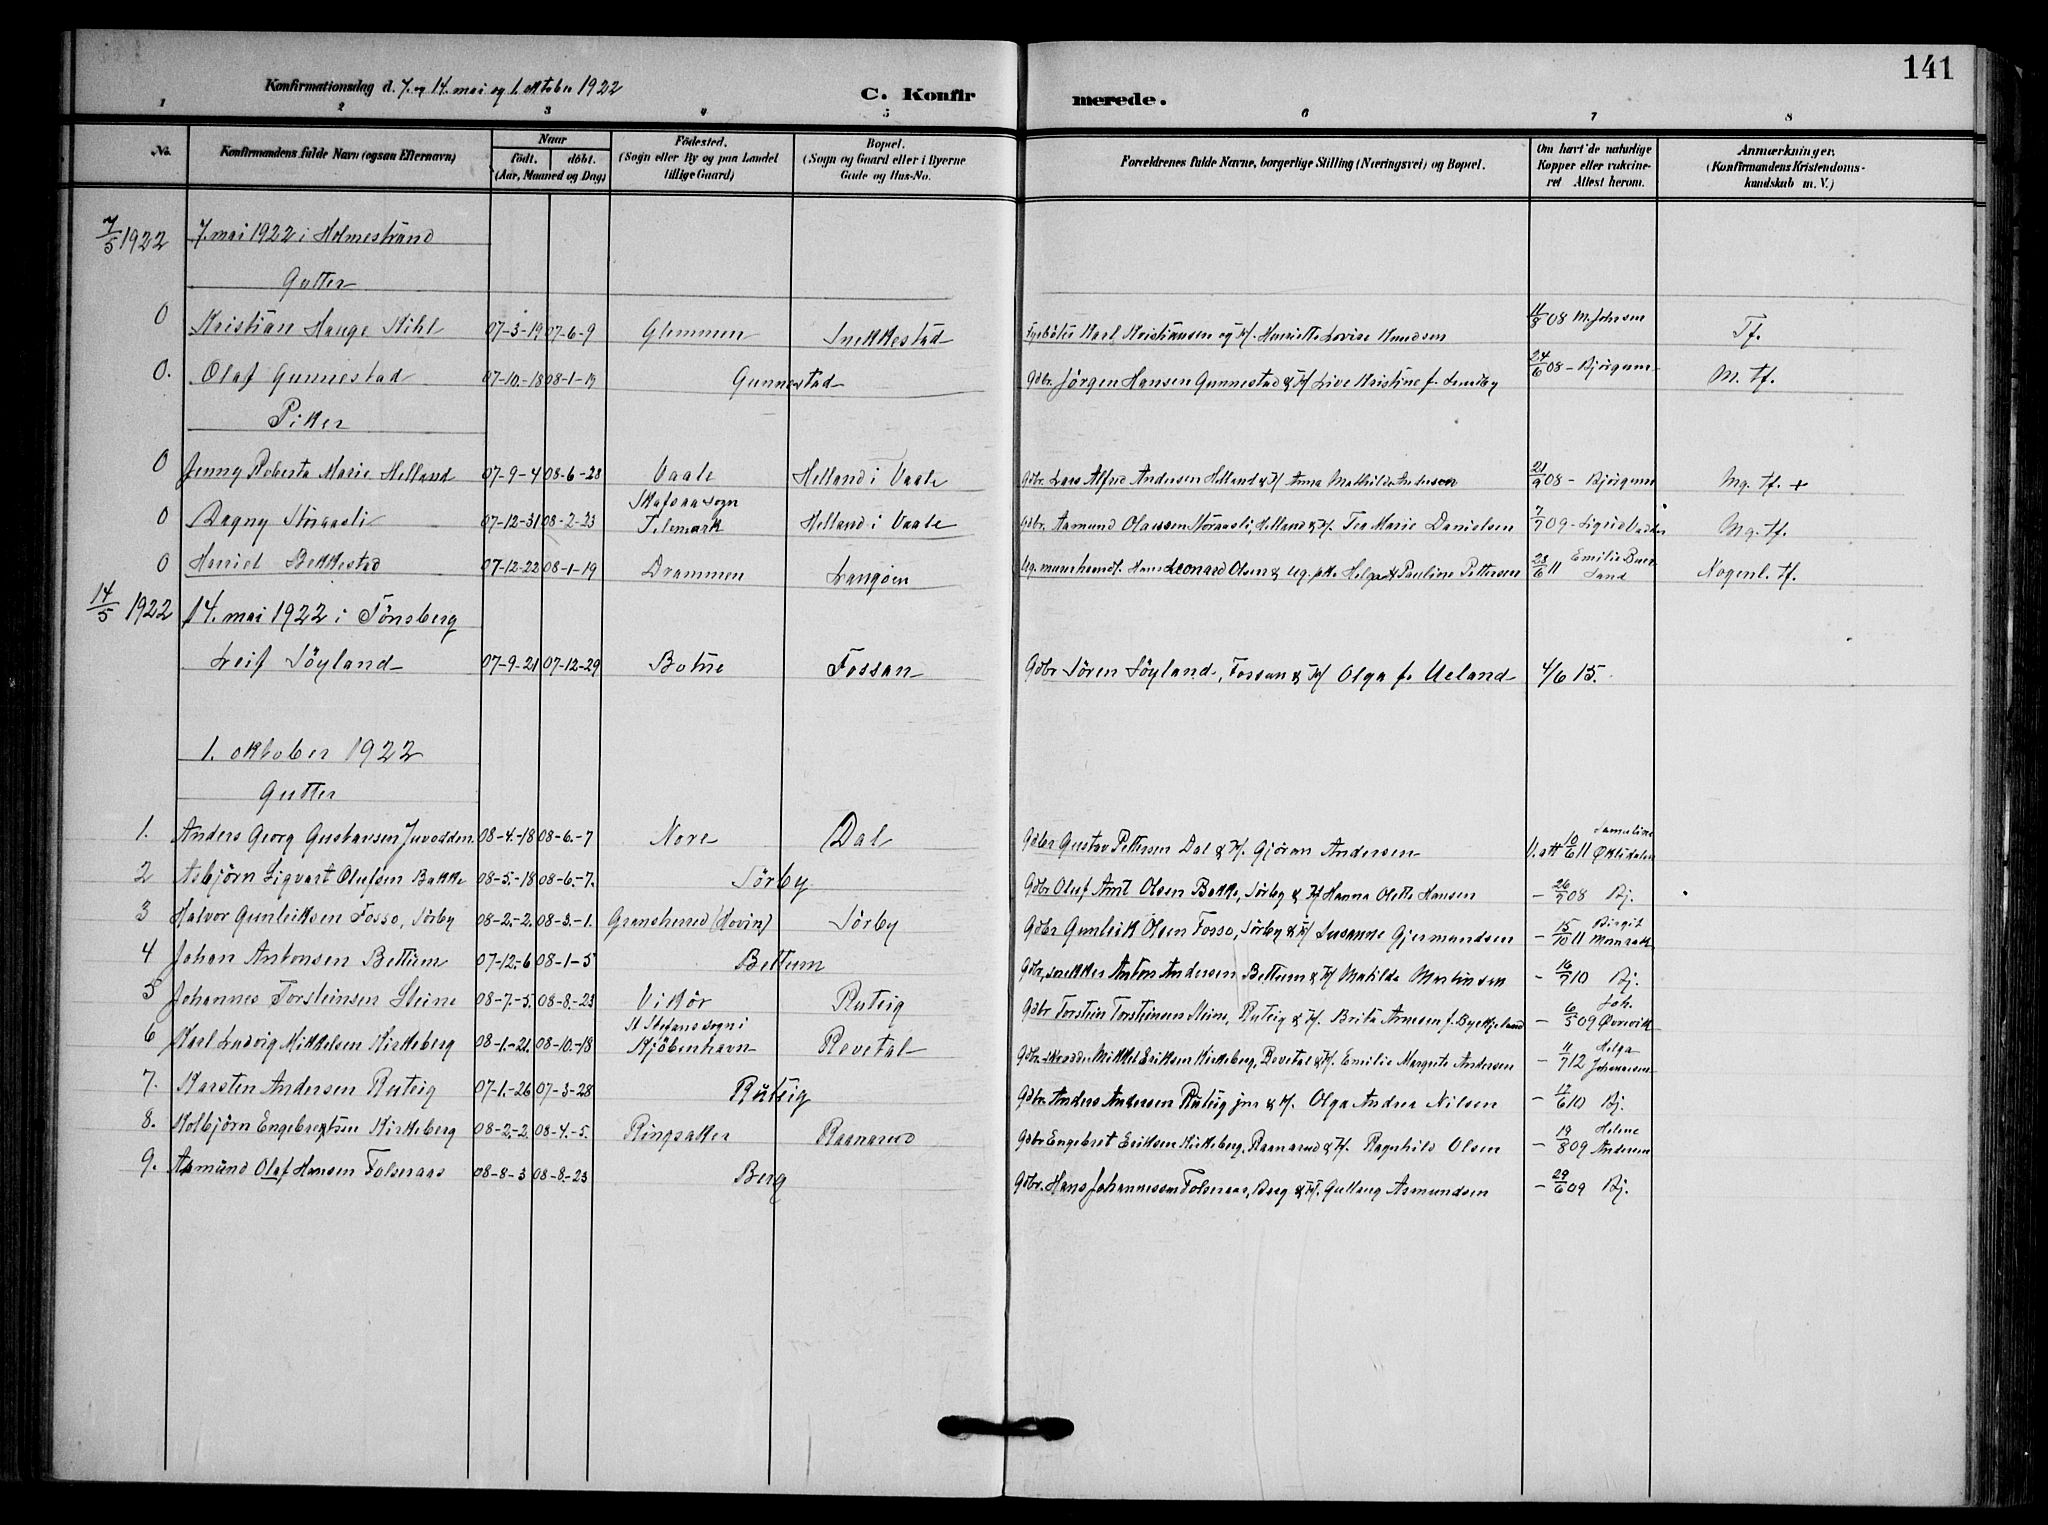 141
Konfirmationsdag d. 7. og 14. mai og 1. oktober 1922
C. Konfirmerede.
1 2 3 4 5 6 7 8
No.
Konfirmandens fulde Navn (ogsaa Efternavn)
Naar
födt. döbt.
(Aar, Maaned og Dag)
Födested.
(Sogn eller By og paa Landet
tillige Gaard)
Bopæl.
(Sogn og Gaard eller i Byerne
Gade og Hus-No.
Forældrenes fulde Navne, borgerlige Stilling (Næringsvei) og Bopæl.
Om havt de naturlige
Kopper eller vakcine-
ret Attest herom.
Anmærkninger.
(Konfirmandens Kristendoms-
kundskab m. V.)
7/5 1922 7. mai 1922 i Holmestrand
Gutter
0 Kristian Hauge Kihl 07-3-19 07-6-9 Glemmen Snekkestad Karl Kristiansen og H. Henriette Lovise Knudsen 11/8 08 M. Johnsen Tf.
0. Olaf Gunnestad 07-10-18 08-1-19 Gunnestad Gdbr. Jörgen Hansen Gunnestad & H Live Kristine f. Lundby 24/6 08 - Björgum M. tf.
Piker
0 Jenny Roberta Marie Helland 07-9-4 08-6-28 Vaale Helland i Vaale Gdbr. Lars Alfred Andersen Helland & H Anna Mathilde Andersen 21/9 08 - Björgum Mg. tf. +
0 Dagny Storaasli 07-12-31 08-2-23 Skafsaa sogn
Telemark Helland i Vaale Gdbr. Aamund Olaussen Storaasli, Helland & H. Tea Marie Danielsen 7/7 09 - Mg. tf.
0 Harriet Bekkestad 07-12-22 08-1-19 Drammen Langöen Ug. murerhaandl. Hans Leonard Olsen & ug. pke Helga Pauline Pettersen 23/6 11 Emilie Buer
Sand Nogenl. tf.
14/5 1922 14. mai 1922 i Tönsberg
Leif Söyland 07-9-21 07-12-29 Botne Fossan Gdbr Sören Söyland, Fossan & H Olga f. Ueland 4/6 15.
1. oktober 1922
Gutter
1. Anders Georg Gustavsen Juvodden 08-4-18 08-6-7 Nore Dal Gdbr Gustav Pettersen Dal & H. Gjöran Andersen V. att 10/6 11
2 Asbjörn Sigvart Olufsen Bakke 08-5-18 08-6-7. Sörby Gdbr Oluf Ant Olsen Bakke, Sörby & H Hanna Olette Hansen - 26/7 08 Bj.
3 Halvor Gunleiksen Fosso, Sörby 08-2-2. 08-3-1. Gransherred (Hovin) Sörby Gdbr Gunleik Olsen Fosso, Sörby & H Susanne Gjermundsen - 15/10 11 Birgit
4 Johan Antonsen Bettum 07-12-6 08-1-5 Bettum Gdbr, snekker Anton Andersen Bettum & H Matilda Martinsen - 16/7 10 Bj.
5 Johannes Torsteinsen Steine 08-7-5. 08-8-23 Vikör Rutsig Gdbr Torstein Torsteinsen Steine, Rutsig & H. Brita Arnesen f. Byrkjeland - 6/5 09 Joh.
Övrevik
6 Karl Ludvig Mikkelsen Kirkeberg 08-1-21. 08-10-18 St Stefans sogn i
Kjöbenhavn Revetal Mikkel Eriksen Kirkeberg, Revetal & H. Emilie Margrete Andersen - 11/7 12 Helga
Johannesen
7. Karsten Andersen Rutsig 07-1-26 07-3-28 Rutsig Gdbr. Anders Andersen Rutsig jnr & H. Olga Andrea Nilsen - 17/6 10 Bj.
8. Kolbjörn Engebretsen Kirkeberg 08-2-2. 08-4-5. Ringsaker Raanarud Gdbr Engebret Eriksen Kirkeberg, Raanarud & H. Ragnhild Olsen - 19/8 09 Helene
Andersen
9. Asmund Olaf Hansen Folseraas 08-8-3 08-8-23 Berg Gdbr. Hans Johannessen Folseraas, Berg & H. Gullaug Asmundsen - 29/6 09 Bj.